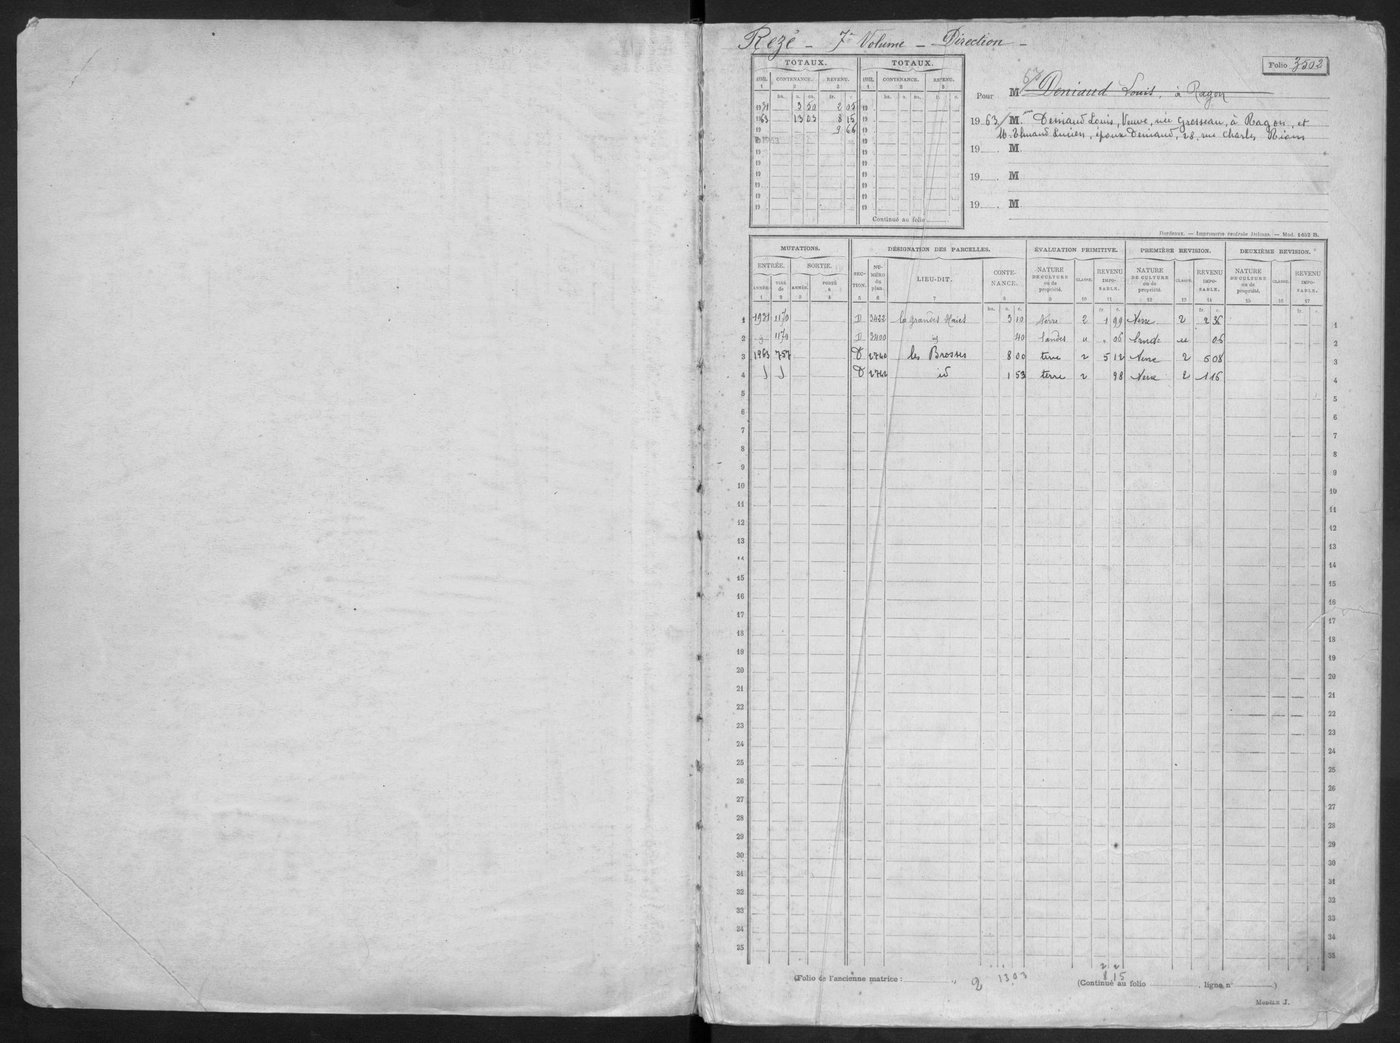 Rezé - 7e Volume - Direction -
Folio 3502
TOTAUX. TOTAUX.
CONTENANCE. REVENU. CONTENANCE. REVENU.
1 2 3 1 2 3
ha. a. ca. fr. c. ha. a. ca. fr. c.
1931 3 50 2 05 19
1963 13 03 8 15 19
19 9 66 19
Continué au folio
Pour M Deniaud Louis, à Ragon
1963 M Deniaud Louis, Veuve, née Grosseau, à Ragon, et
Lucien, époux Deniaud, 28, rue Charles
19 M
19 M
19 M
Bordeaux. — Imprimerie centrale Delmas. — Mod. 1652 B.
MUTATIONS. DÉSIGNATION DES PARCELLES. ÉVALUATION PRIMITIVE. PREMIÈRE REVISION. DEUXIÈME REVISION.
ENTRÉE. SORTIE. SECTION. NUMÉRO du plan. LIEU-DIT. CONTENANCE. NATURE DE CULTURE ou de propriété. CLASSE. REVENU IMPOSABLE. NATURE DE CULTURE ou de propriété. CLASSE. REVENU IMPOSABLE. NATURE DE CULTURE ou de propriété. CLASSE. REVENU IMPOSABLE.
ANNÉE. TIRÉ de ANNÉE. PORTÉ à
1 2 3 4 5 6 7 8 9 10 11 12 13 14 15 16 17
ha. a. ca. fr. c. fr. c. fr. c.
1 1931 1170 D 3422 les grandes Haies 3 10 terre 2 1 99 Terre 2 2 36 1
2 1170 D 3400 40 landes u 06 Lande u 05 2
3 1963 757 D 2740 les Brosses 8 00 terre 2 5 12 Terre 2 6 08 3
4 D 2742 id 1 53 terre 2 98 Terre 2 1 16 4
5 5
6 6
7 7
8 8
9 9
10 10
11 11
12 12
13 13
14 14
15 15
16 16
17 17
18 18
19 19
20 20
21 21
22 22
23 23
24 24
25 25
26 26
27 27
28 28
29 29
30 30
31 31
32 32
33 33
34 34
35 35
(Folio de l'ancienne matrice : 13.03 8 15
(Continué au folio , ligne n° )
Modèle J.